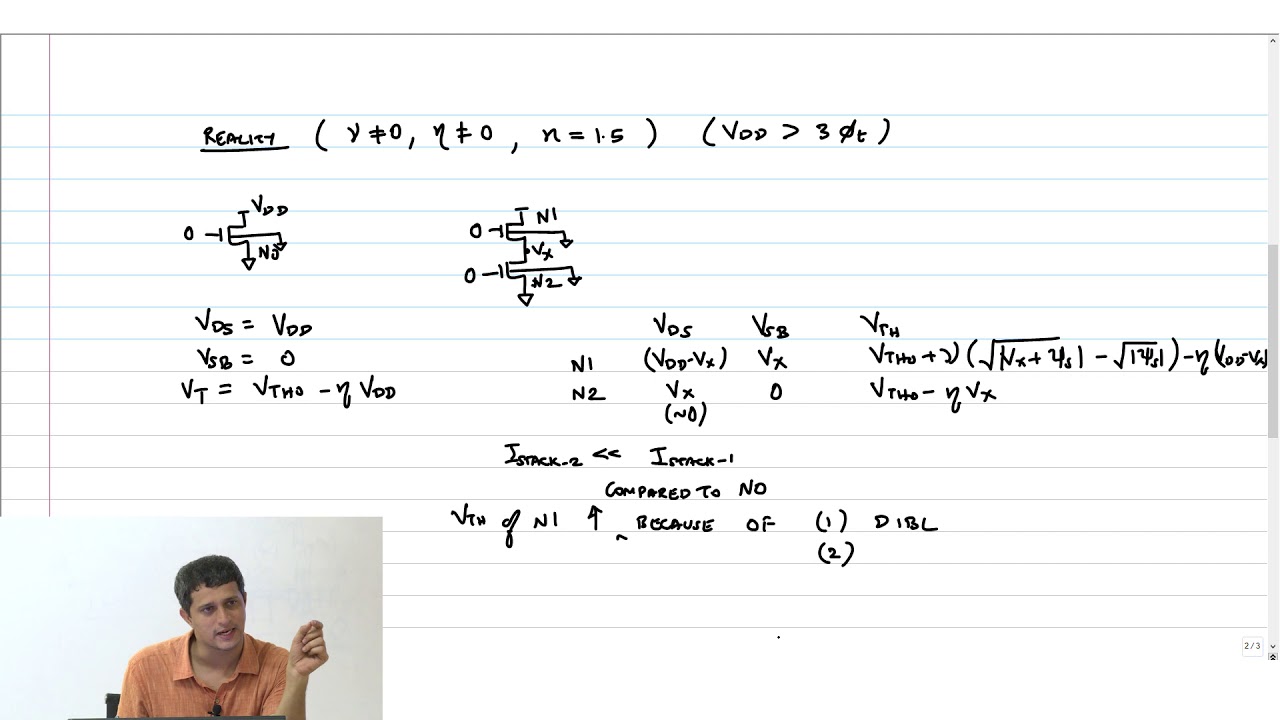 REALITY ( γ ≠ 0, η ≠ 0, n = 1.5 ) (VDD > 3 ϕt)
VDD
0
N0
N1
0
VX
0
N2
VDS = VDD
VSB = 0
VT = VTHO - η VDD
VDS VSB VTH
N1 (VDD-VX) VX VTHO + γ (√|VX + ψs| - √|ψs|) - η (VDD-VX
N2 VX 0 VTHO - η VX
(~0)
ISTACK-2 << ISTACK-1
COMPARED TO N0
VTH of N1 ↑ BECAUSE OF (1) DIBL
(2)
2/3